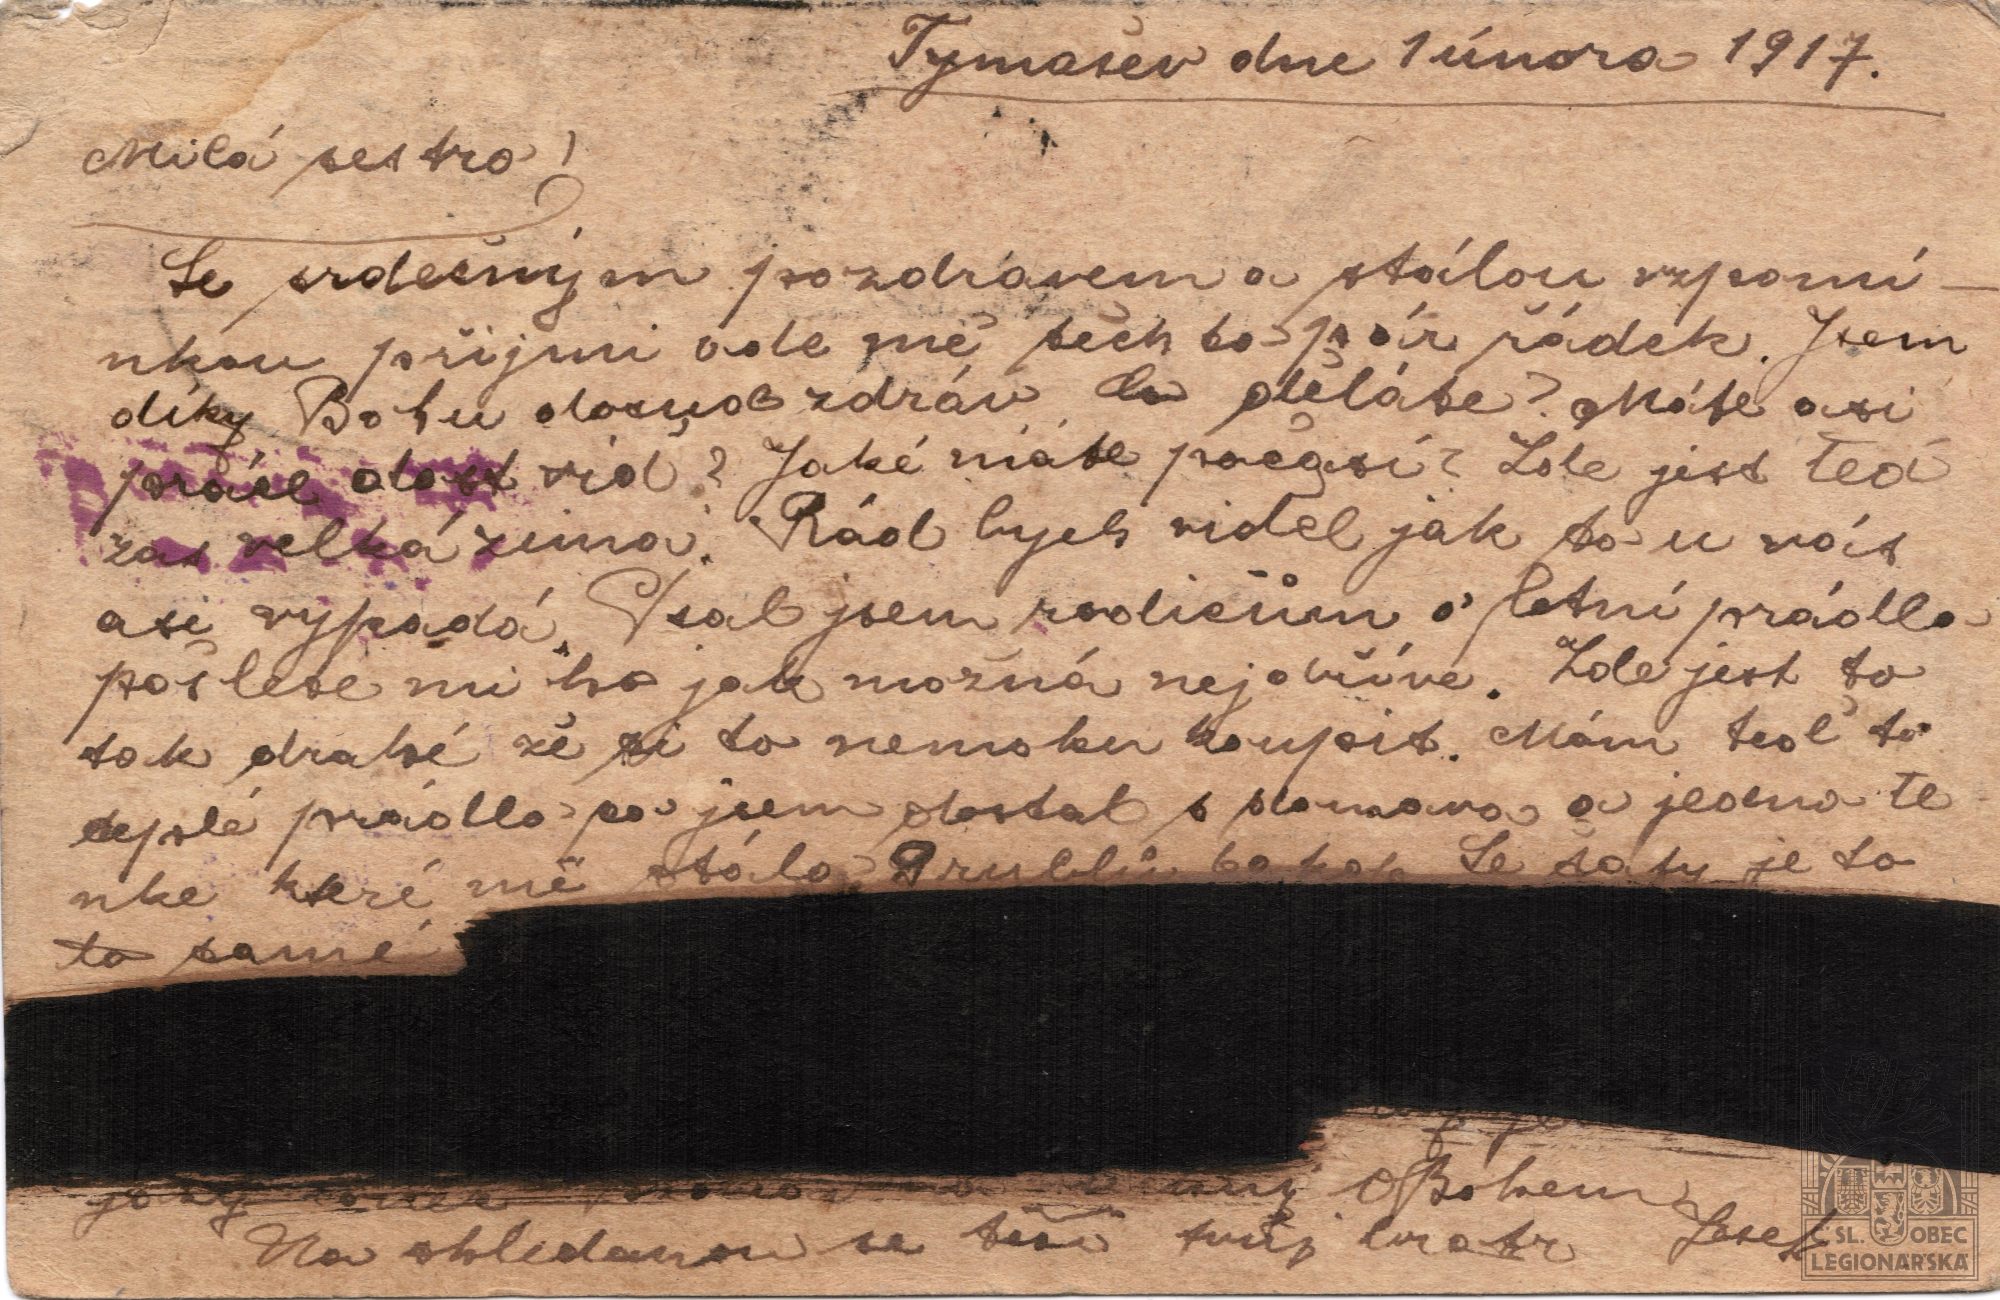 Tymašev dne 1 února 1917.
Milá sestro!
Se srdečným pozdravem a stálou vzpomí–
nkou přijmi ode mě těchto pár řádek. Jsem
díky Bohu dosud zdráv. Co děláte? Máte asi
práce dost viď? Jaké máte počasí? Zde jest teď
zas velká zima. Rád bych videl jak to u vás
asi vypadá. Psal jsem rodičům o letní prádlo
pošlete mi ho jak možná nejdříve. Zde jest to
tak drahé že si to nemohu koupit. Mám teď to
teplé prádlo co jsem dostal s domova a jedno te
nke které mě stálo 7 rublů Se šaty je to
to samé
S Bohem
Na shledanou se těší tvůj bratr Josef
ČSL. OBEC
LEGIONÁŘSKÁ